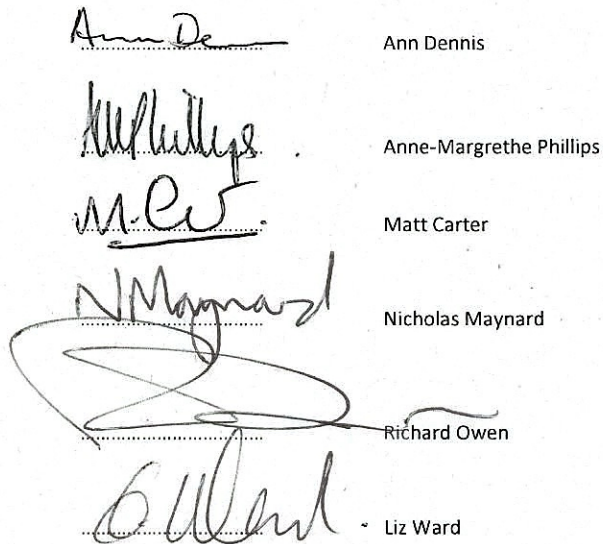 Ann De Ann Dennis
AMPhillips. Anne-Margrethe Phillips
M. Matt Carter
NMaynard Nicholas Maynard
Richard Owen
E Ward Liz Ward